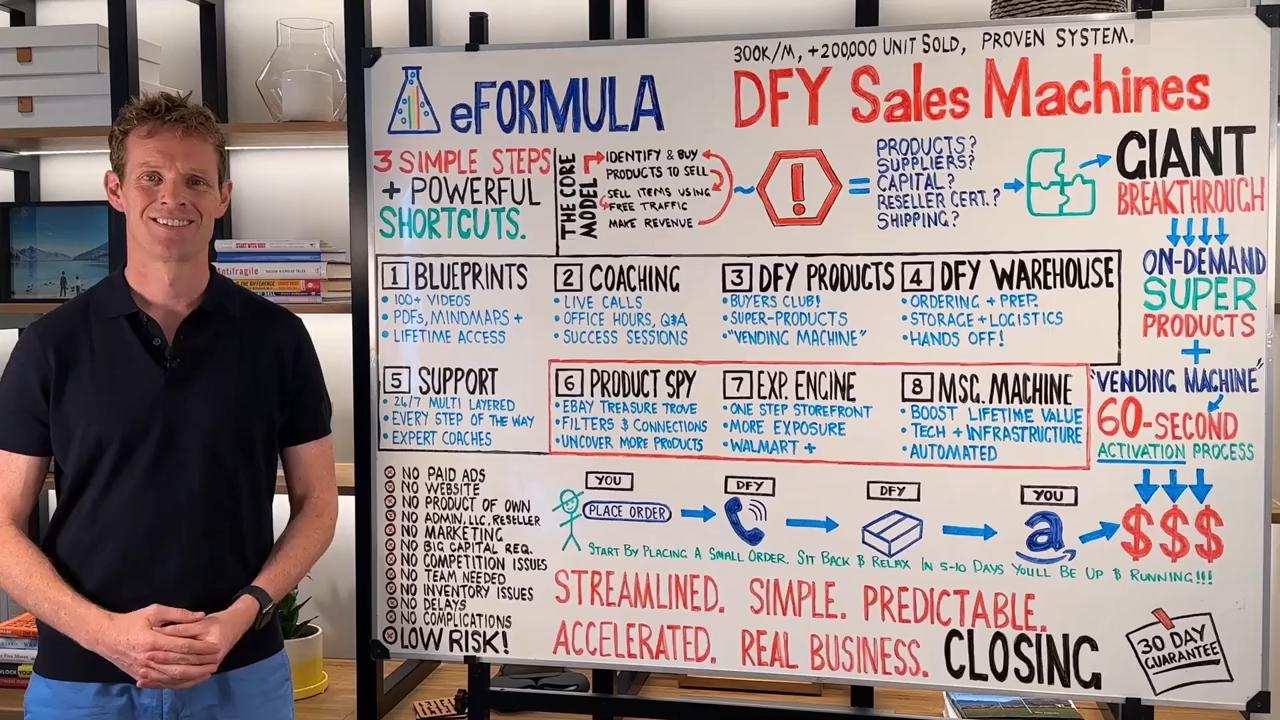 300K/M, +200,000 UNIT SOLD, PROVEN SYSTEM.
eFORMULA
DFY Sales Machines
3 SIMPLE STEPS
+ POWERFUL
SHORTCUTS.
THE CORE
MODEL
IDENTIFY & BUY
PRODUCTS TO SELL
SELL ITEMS USING
FREE TRAFFIC
MAKE REVENUE
!
=
PRODUCTS?
SUPPLIERS?
CAPITAL?
RESELLER CERT.?
SHIPPING?
GIANT
BREAKTHROUGH
ON-DEMAND
SUPER
PRODUCTS
+
"VENDING MACHINE"
60-SECOND
ACTIVATION PROCESS
$$$
1 BLUEPRINTS
• 100+ VIDEOS
• PDFs, MINDMAPS +
• LIFETIME ACCESS
2 COACHING
• LIVE CALLS
• OFFICE HOURS, Q&A
• SUCCESS SESSIONS
3 DFY PRODUCTS
• BUYERS CLUB!
• SUPER-PRODUCTS
• "VENDING MACHINE"
4 DFY WAREHOUSE
• ORDERING + PREP.
• STORAGE + LOGISTICS
• HANDS OFF!
5 SUPPORT
• 24/7 MULTI LAYERED
• EVERY STEP OF THE WAY
• EXPERT COACHES
6 PRODUCT SPY
• EBAY TREASURE TROVE
• FILTERS & CONNECTIONS
• UNCOVER MORE PRODUCTS
7 EXP. ENGINE
• ONE STEP STOREFRONT
• MORE EXPOSURE
• WALMART +
8 MSG. MACHINE
• BOOST LIFETIME VALUE
• TECH + INFRASTRUCTURE
• AUTOMATED
NO PAID ADS
NO WEBSITE
NO PRODUCT OF OWN
NO ADMIN, LLC, RESELLER
NO MARKETING
NO BIG CAPITAL REQ.
NO COMPETITION ISSUES
NO TEAM NEEDED
NO INVENTORY ISSUES
NO DELAYS
NO COMPLICATIONS
LOW RISK!
YOU
PLACE ORDER
DFY
DFY
YOU
a
START BY PLACING A SMALL ORDER. SIT BACK & RELAX IN 5-10 DAYS YOU'LL BE UP & RUNNING!!!
STREAMLINED. SIMPLE. PREDICTABLE.
ACCELERATED. REAL BUSINESS. CLOSING
30 DAY
GUARANTEE
START WITH WHY
Antifragile